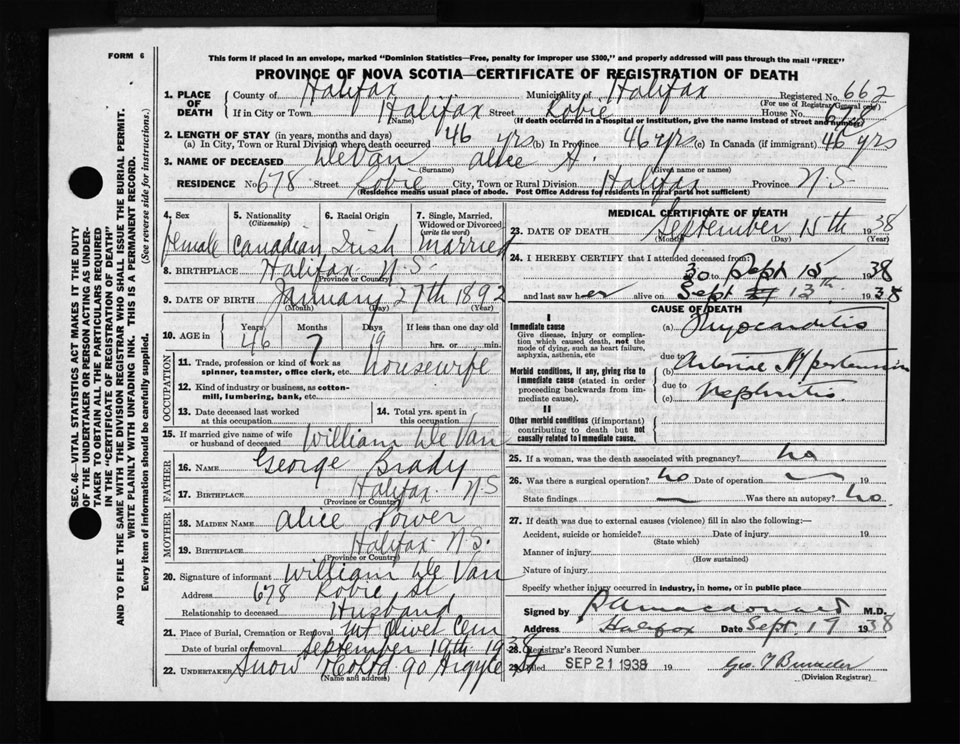 FORM 6
This form if placed in an envelope, marked "Dominion Statistics—Free, penalty for improper use $300," and properly addressed will pass through the mail "FREE"
PROVINCE OF NOVA SCOTIA—CERTIFICATE OF REGISTRATION OF DEATH
1. PLACE OF DEATH
County of Halifax Municipality of Halifax Registered No. 662
(For use of Registrar General only)
If in City or Town Halifax Street Robie House No. 678
(Name) (If death occurred in a hospital or institution, give the name instead of street and number)
2. LENGTH OF STAY (in years, months and days)
(a) In City, Town or Rural Division where death occurred 46 yrs (b) In Province 46 yrs (c) In Canada (if immigrant) 46 yrs
3. NAME OF DECEASED DeVan Alice A.
(Surname) (Given name or names)
RESIDENCE No 678 Street Robie City, Town or Rural Division Halifax Province N.S
(Residence means usual place of abode. Post Office Address for residents in rural parts not sufficient)
4. Sex 5. Nationality (Citizenship) 6. Racial Origin 7. Single, Married, Widowed or Divorced (write the word)
female Canadian Irish Married
8. BIRTHPLACE Halifax N.S.
(Province or Country)
9. DATE OF BIRTH January 27th 1892
(Month) (Day) (Year)
10. AGE in Years Months Days If less than one day old
46 7 19 hrs. or min.
OCCUPATION
11. Trade, profession or kind of work as spinner, teamster, office clerk, etc. Housewife
12. Kind of industry or business, as cotton-mill, lumbering, bank, etc.
13. Date deceased last worked at this occupation
14. Total yrs. spent in this occupation
15. If married give name of wife or husband of deceased William De Van
FATHER
16. NAME George Brady
17. BIRTHPLACE Halifax N S
(Province or Country)
MOTHER
18. MAIDEN NAME Alice Power
19. BIRTHPLACE Halifax N.S.
(Province or Country)
20. Signature of informant William De Van
Address 678 Robie St
Relationship to deceased Husband
21. Place of Burial, Cremation or Removal Mt Olivet Cem
Date of burial or removal September 19th 1938
22. UNDERTAKER Snow 90 Argyle St
(Name and address)
MEDICAL CERTIFICATE OF DEATH
23. DATE OF DEATH September 15th 1938
(Month) (Day) (Year)
24. I HEREBY CERTIFY that I attended deceased from:
30 to Sept 15 1938
and last saw her alive on Sept 13th 1938
CAUSE OF DEATH
I
Immediate cause
Give disease, injury or complication which caused death, not the mode of dying, such as heart failure, asphyxia, asthenia, etc
(a) Myocarditis
due to
Morbid conditions, if any, giving rise to immediate cause (stated in order proceeding backwards from immediate cause).
(b) Arterial Hypertension
due to
(c) Nephritis
II
Other morbid conditions (if important) contributing to death but not causally related to immediate cause.
25. If a woman, was the death associated with pregnancy? no
26. Was there a surgical operation? no Date of operation — 19
State findings — Was there an autopsy? no
27. If death was due to external causes (violence) fill in also the following:—
Accident, suicide or homicide? Date of injury 19
(State which)
Manner of injury
(How sustained)
Nature of injury
Specify whether injury occurred in industry, in home, or in public place
Signed by Macdonald M.D.
Address Halifax Date Sept. 17 1938
28. Registrar's Record Number
29. Filed SEP 21 1938 19
(Division Registrar)
SEC. 46—VITAL STATISTICS ACT MAKES IT THE DUTY
OF THE UNDERTAKER OR PERSON ACTING AS UNDER-
TAKER TO OBTAIN ALL THE PARTICULARS REQUIRED
IN THE "CERTIFICATE OF REGISTRATION OF DEATH"
AND TO FILE THE SAME WITH THE DIVISION REGISTRAR WHO SHALL ISSUE THE BURIAL PERMIT.
WRITE PLAINLY WITH UNFADING INK. THIS IS A PERMANENT RECORD.
Every item of information should be carefully supplied. (See reverse side for instructions.)